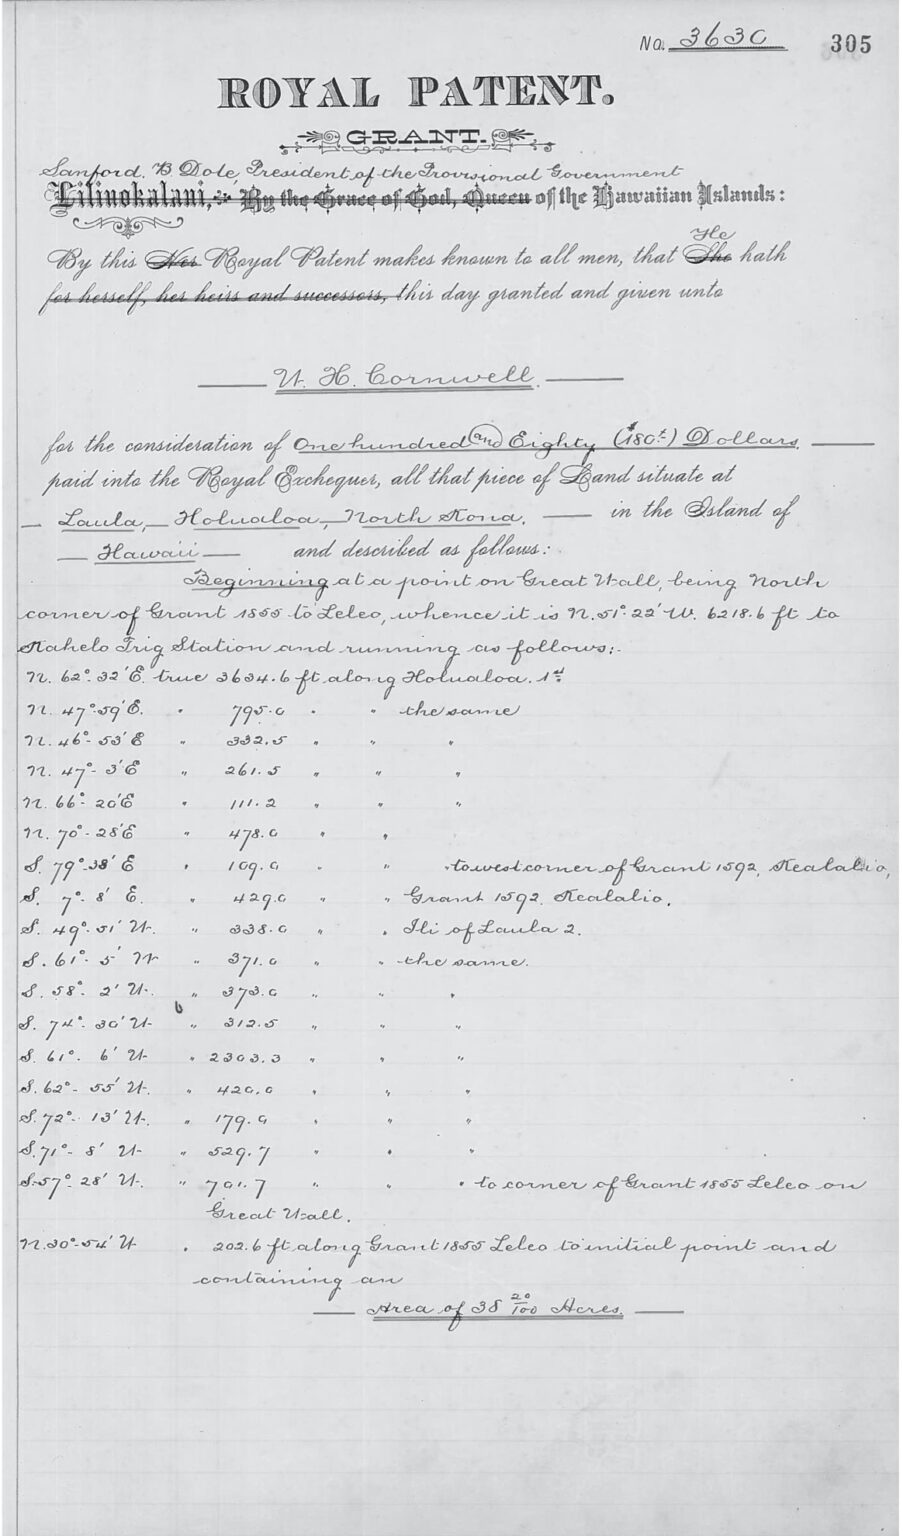 No. 3630 305
ROYAL PATENT.
GRANT.
Sanford. B Dole, President of the Provisional Government
Liliuokalani, By the Grace of God, Queen of the Hawaiian Islands:
He
By this Her Royal Patent makes known to all men, that She hath
for herself, her heirs and successors, this day granted and given unto
W. H. Cornwell.
for the consideration of One hundred and Eighty ($180.) Dollars.
paid into the Royal Exchequer, all that piece of Land situate at
Laula, Holualoa, North Kona. in the Island of
Hawaii and described as follows:
Beginning at a point on Great Wall, being North
corner of Grant 1855 to Leleo, whence it is N. 51° 22' W. 6218.6 ft to
Kahelo Trig Station and running as follows:
N. 62° 32' E. true 3634.6 ft along Holualoa. 1st
N. 47° 59' E. " 795.0 " " the same
N. 46° 53' E " 332.5 " " "
N. 47° 3' E " 261.5 " " "
N. 66° 20' E " 111.2 " " "
N. 70° 28' E " 478.0 " "
S. 79° 38' E " 109.0 " " " to west corner of Grant 1592, Kealalio,
S. 7° 8' E. " 429.0 " " Grant 1592. Kealalio.
S. 49° 51' W. " 338.0 " " Ili of Laula 2.
S. 61° 5' W " 371.0 " " the same.
S. 58° 2' W. " 373.0 " " "
S. 74° 30' W " 312.5 " " "
S. 61° 6' W " 2303.3 " " "
S. 62° 55' W. " 420.0 " " "
S. 72° 13' W. " 179.0 " " "
S. 71° 8' W " 529.7 " " "
S. 57° 28' W. " 701.7 " " " to corner of Grant 1855 Leleo on
Great Wall.
N. 30° 54' W " 202.6 ft along Grant 1855 Leleo to initial point and
containing an
Area of 38 20/100 Acres.